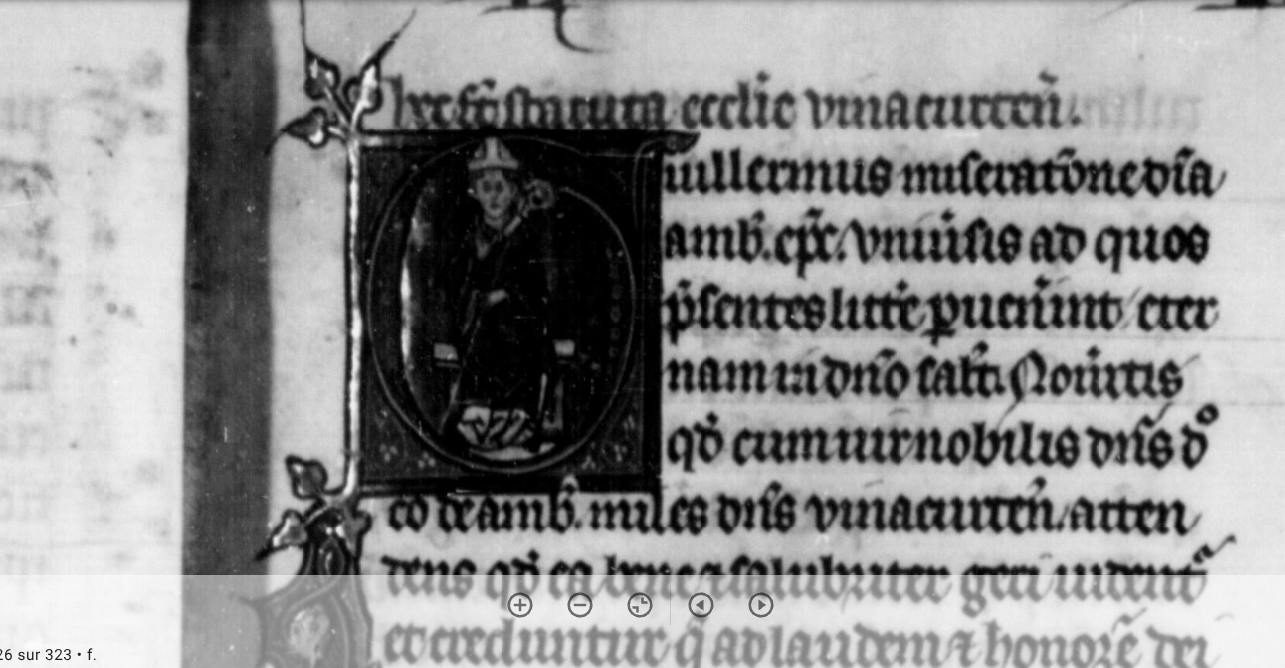 hec sūt statuta ecclie vinacurteñ.
uillermus miseratōne dīa
amb. epc. vniūsis ad quos
p̄sentes littē puen̄int / eter
nam in dn̄o salt̄. Nou̅itis
qd̄ cum uir nobilis dn̄s d'o
co de amb̄. miles dn̄s vinacurteñ. atten
dens qd̄ ea bene ⁊ salubriter geri uident̄
et creduntur q̄ ad laudem ⁊ honorē dei
26 sur 323 • f.